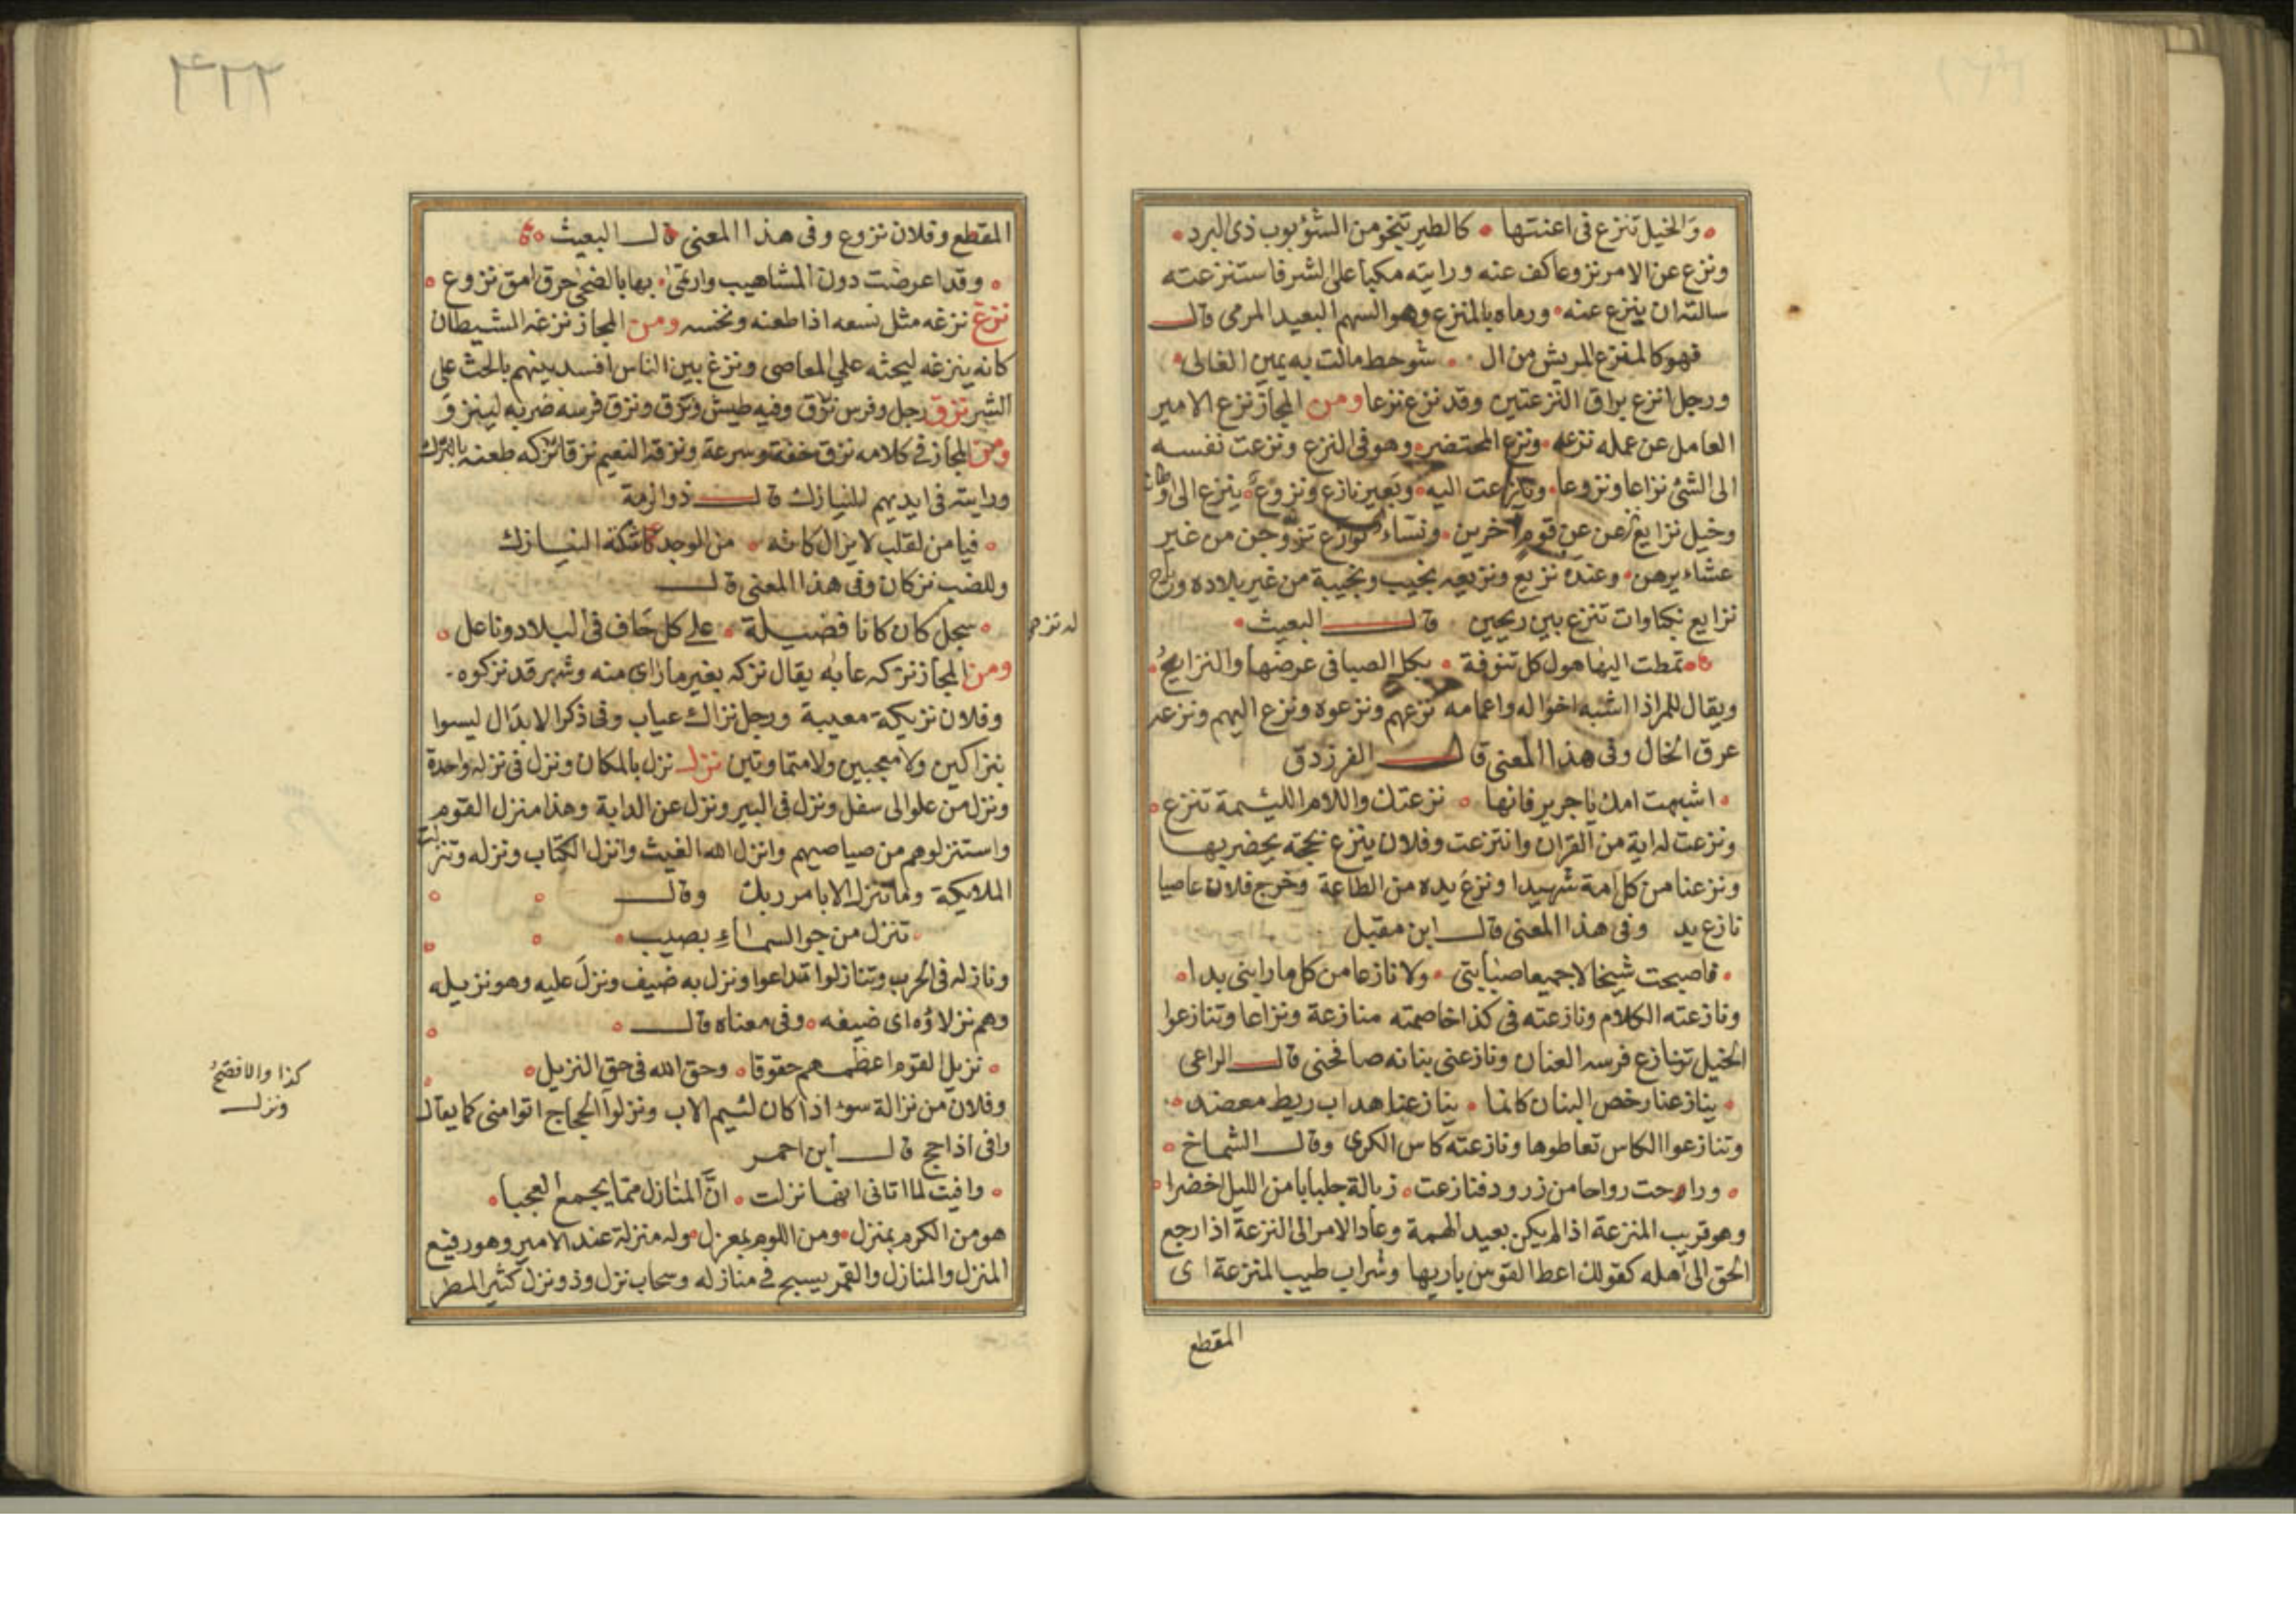 والخيل تنزع في اعنتها كالطير تنجو من الشؤبوب ذى البرد
ونزع عن الامر نزوعا كف عنه ورايته مكبا على الشر فاستنزعته
سالته ان ينزع عنه ورماه بالمنزع وهو السهم البعيد المرمى قال
فهو كالمنزع المريش من ال شوحط مالت به يمين الغالى
ورجل انزع براق النزعتين وقد نزع نزعا ومن المجاز نزع الامير
العامل عن عمله نزعه ونزع المحتضر وهو فى النزع ونزعت نفسه
الى الشئ نزاعا ونزوعا ونازعت اليه وبعير نازع ونزوع ينزع الى
وخيل نزايع عن قوم اخرين ونساء نوازع تزوجن من غير
عشاءيرهن وعنده نزيع ونزيعه نجيب ونجيبة من غير بلاده
نزايع نكباوات تنزع بين ريحين قال البعيث
تمطت اليها هول كل تنوفة بكل الصبا فى عرضها والنزايع
ويقال للمراذا اشبه اخواله واعمامه نزعهم ونزعوه ونزع اليهم ونزعه
عرق الخال وفى هذا المعنى قال الفرزدق
اشبهت امك يا جرير فانها نزعتك واللام اللئيمة تنزع
ونزعت له اية من القران وانتزعت وفلان ينزع بحجة يحضر بها
ونزعنا من كل امة شهيدا ونزع يده من الطاعة وخرج فلان عاصيا
نازع يد وفى هذا المعنى قال ابن مقبل
فاصبحت شيخا لا جميعا صبابتى ولا نازعا من كل ما رابنى يدا
ونازعته الكلام ونازعته فى كذا خاصمته منازعة ونزاعا وتنازعوا
الخيل تنازع فرسه العنان ونازعنى بنانه صافحنى قال الراعى
ينازعنا رخص البنان كانما ينازعنا هداب ريط معضد
وتنازعوا الكاس تعاطوها ونازعته كاس الكرى وقال الشماخ
وراحت رواحا من زرود فنازعت زبالة جلبابا من الليل اخضرا
وهو قريب المنزعة اذا لم يكن بعيد الهمة وعاد الامر الى النزعة اذا رجع
الحق الى اهله كقولك اعط القوس باريها وشراب طيب المنزعة اى
المقطع
٤٢٢
المقطع وفلان نزوع وفى هذا المعنى قال البعيث
وقد اعرضت دون المشاهيب وارتمى بها بالضحى خرق امق نزوع
نزغ نزغه مثل نسغه اذا طعنه ونخسه ومن المجاز نزغه الشيطان
كانه ينزغه ليحثه على المعاصى ونزغ بين الناس افسد بينهم بالحث على
الشر نزق رجل وفرس نزق وفيه طيش ونزق ونزق فرسه ضربه لينزق
ومن المجاز فى كلامه نزق خفة وسرعة نزكه طعنه بالنيزك
ورايته فى ايديهم للنيازك قال ذو الرمة
فيا من لقلب لا يزال كانه من الوجد شكته النيازك
وللضب نزكان وفى هذا المعنى قال
سبحل كان كانا فضيلة على كل حاف فى البلاد وناعل
له نزكـ
ومن المجاز نزكه عابه يقال نزكه بغير ما راى منه وشهر قد نزكوه
وفلان نزيكة معيبة ورجل نزاك عياب وفى ذكر الابدال ليسوا
بنزاكين ولا معجبين ولا متماوتين نزل نزل بالمكان ونزل فى نزلة واحدة
ونزل من علو الى سفل ونزل فى البير ونزل عن الدابة وهذا منزل القوم
واستنزلوهم من صياصيهم وانزل الله الغيث وانزل الكتاب ونزله وتنزلت
الملايكة وما نتنزل الا بامر ربك وقال
تنزل من جو السماء بصيب
ونازله فى الحرب وتنازلوا تداعوا ونزل به ضيف ونزل عليه وهو نزيله
وهم نزلاؤه اى ضيفه وفى معناه قال
نزيل القوم اعظمهم حقوقا وحق الله فى حق النزيل
كذا والافصح
ونزل
وفلان من نزالة سوء اذا كان لئيم الاب ونزلوا الحجاج اتوا منى كما يقال
وافى اذا حج قال ابن احمر
وافيت لما اتانى انها نزلت ان المنازل مما يجمع العجبا
هو من الكرم بمنزل ومن اللوم بمعزل وله منزلة عند الامير وهو رفيع
المنزل والمنازل والقمر يسبح فى منازله وسحاب نزل وذو نزل كثير المطر